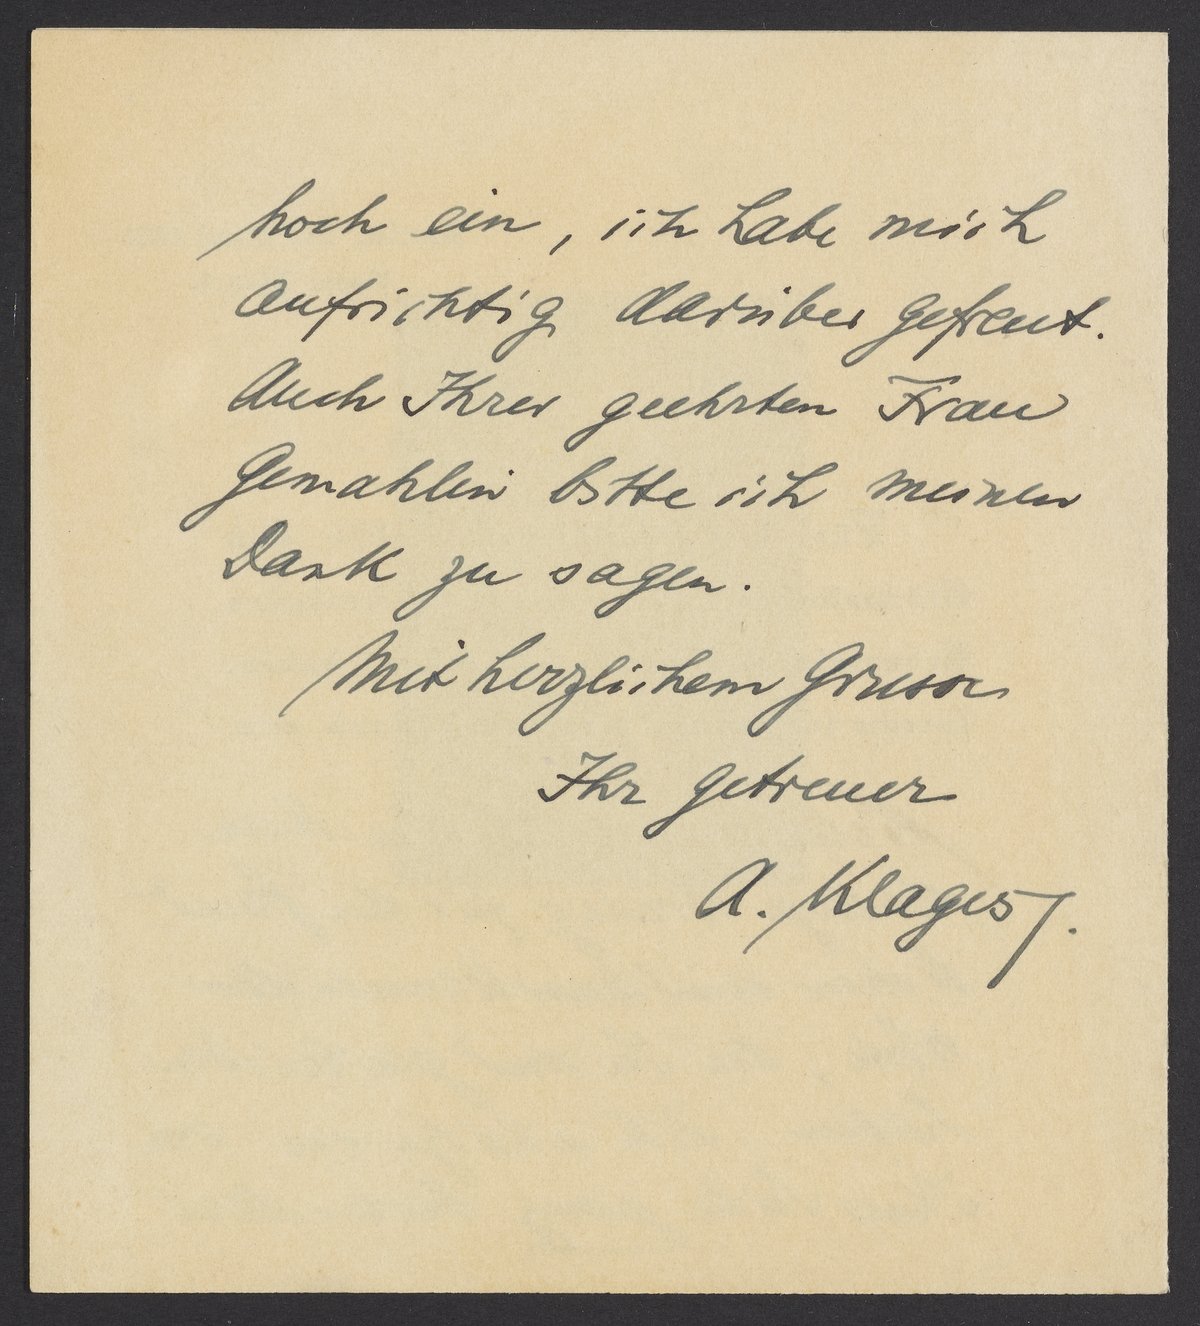 hoch ein, ich habe mich
aufrichtig darüber gefreut.
Auch Ihrer geehrten Frau
Gemahlin bitte ich meinen
Dank zu sagen.
Mit herzlichem Grusse
Ihr getreuer
A. Klages.